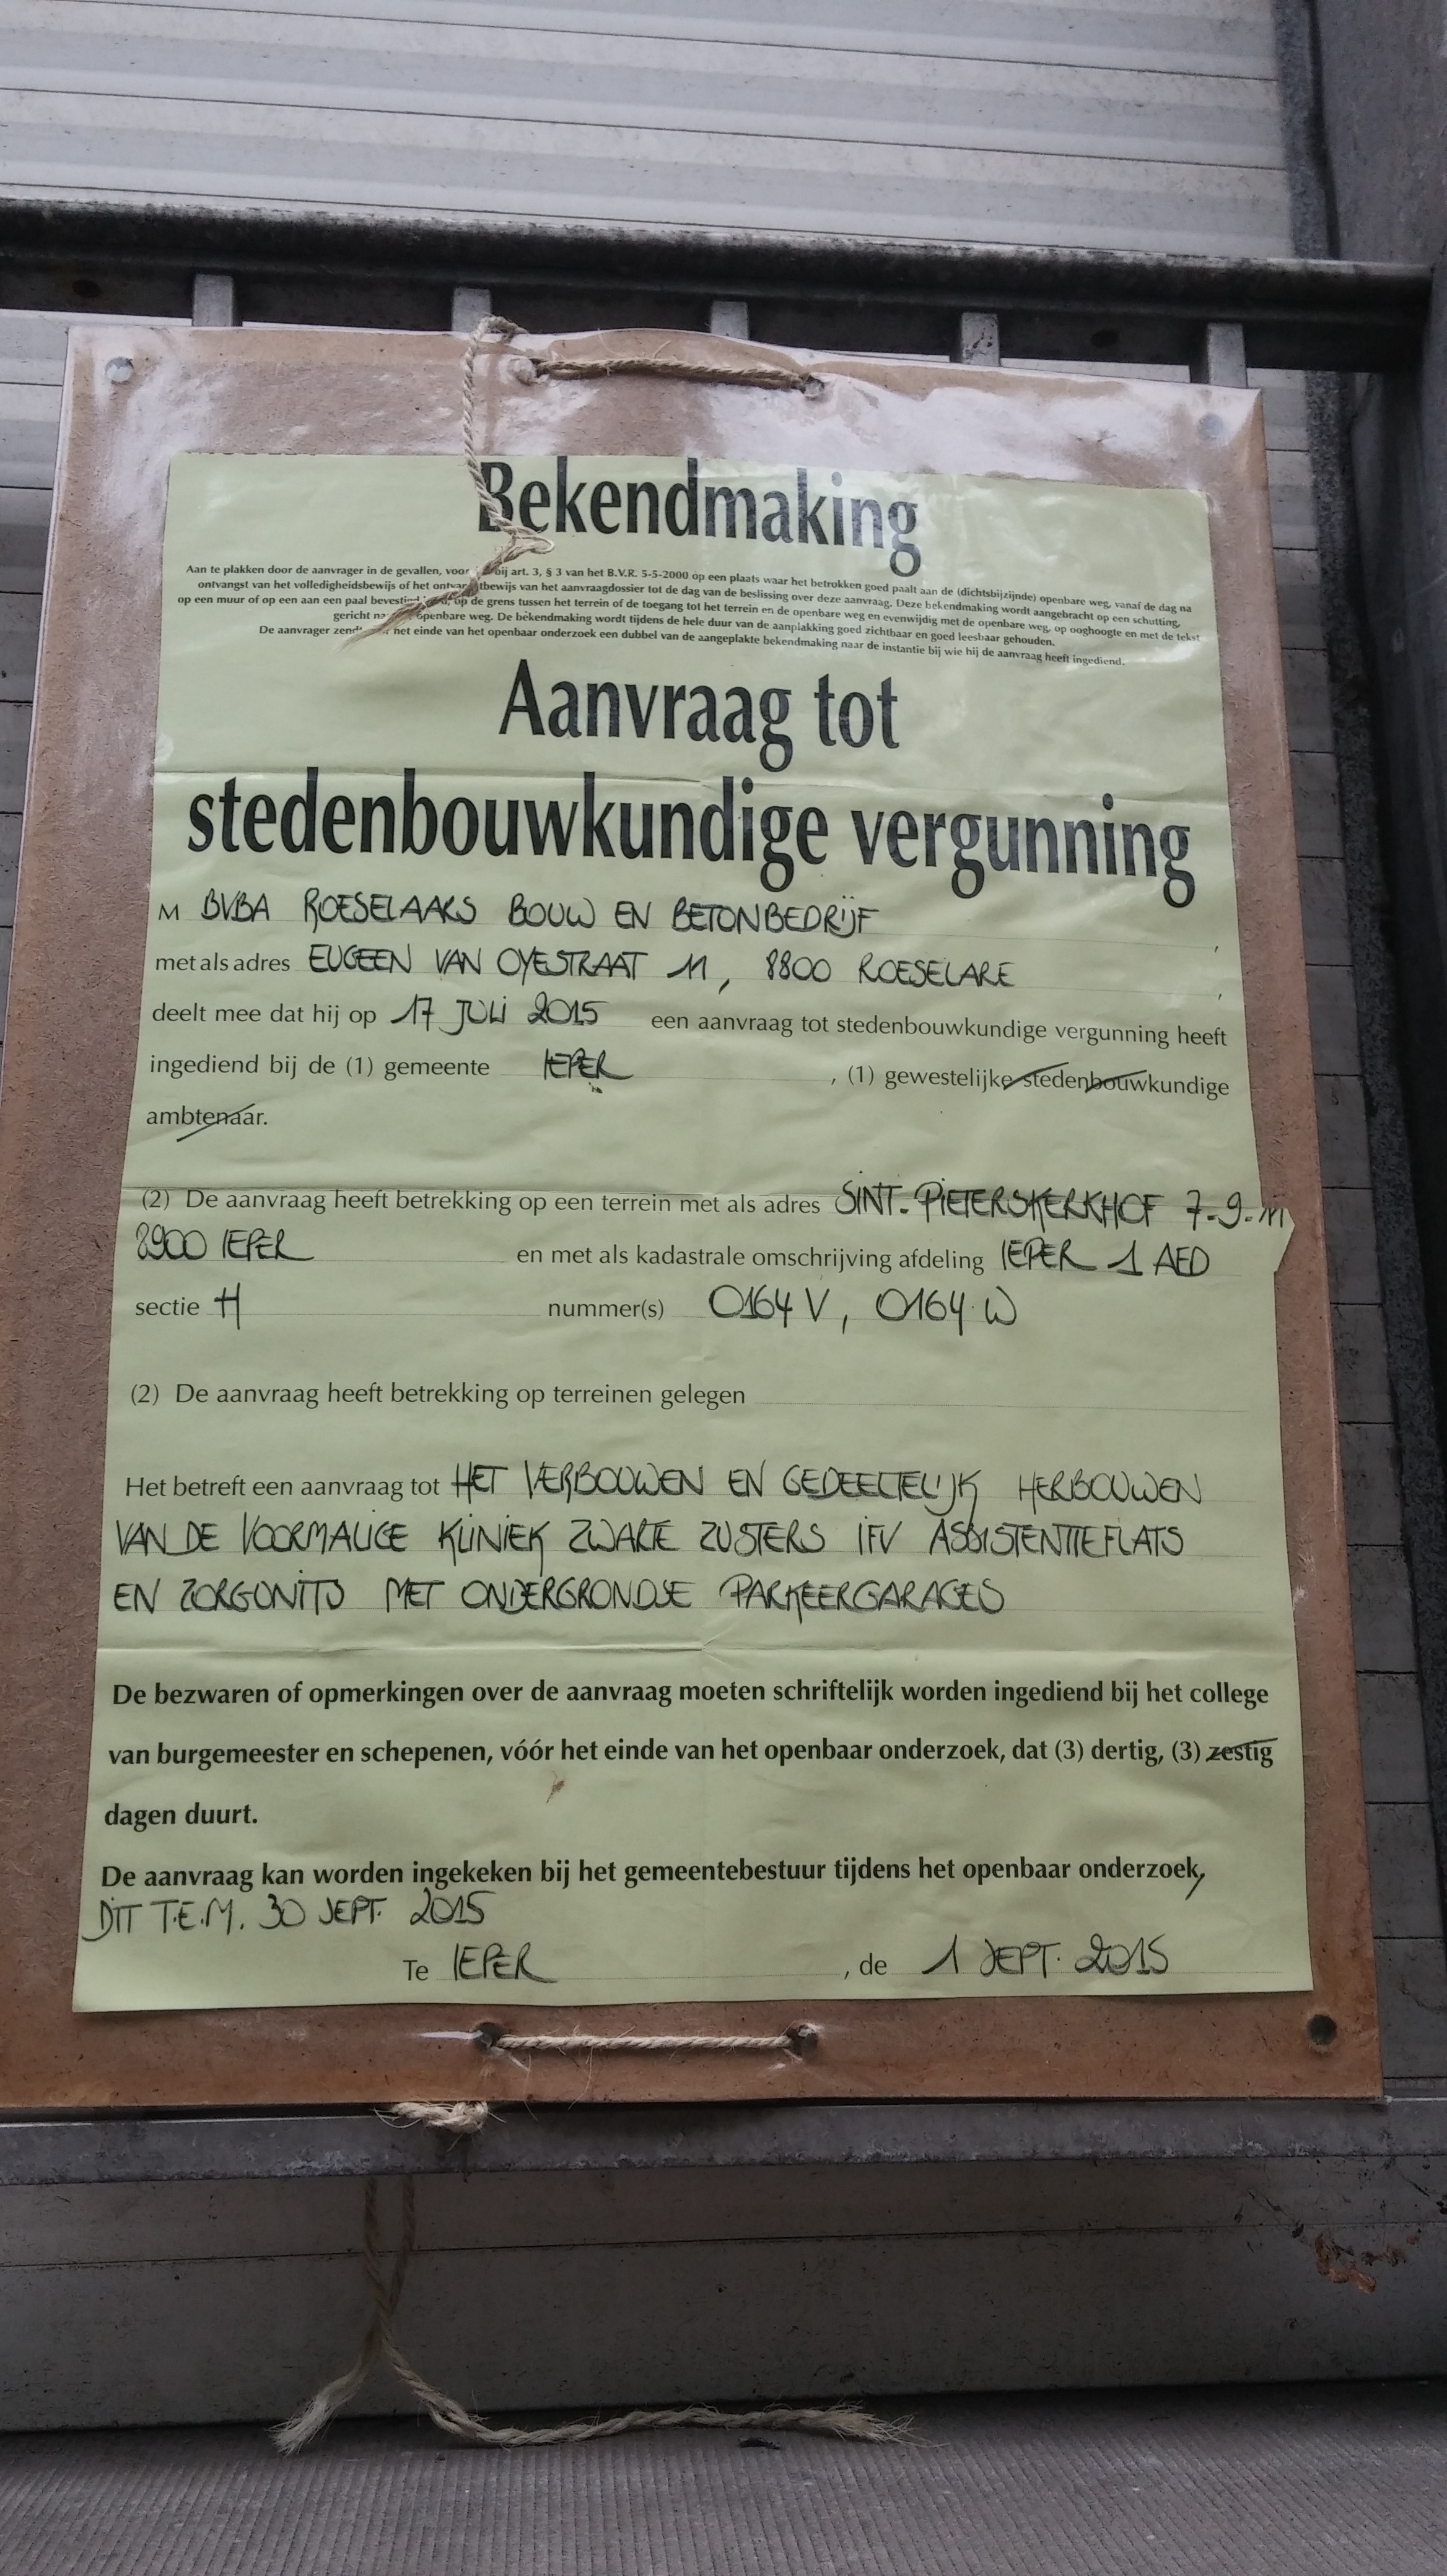 Bekendmaking
Aan te plakken door de aanvrager in de gevallen, voor bij art. 3, § 3 van het B.V.R. 5-5-2000 op een plaats waar het betrokken goed paalt aan de (dichtsbijzijnde) openbare weg, vanaf de dag na
ontvangst van het volledigheidsbewijs of het ontvangstbewijs van het aanvraagdossier tot de dag van de beslissing over deze aanvraag. Deze bekendmaking wordt aangebracht op een schutting,
op een muur of op een aan een paal bevestigd op de grens tussen het terrein of de toegang tot het terrein en de openbare weg en evenwijdig met de openbare weg, op ooghoogte en met de tekst
gericht openbare weg. De bekendmaking wordt tijdens de hele duur van de aanplakking goed zichtbaar en goed leesbaar gehouden.
De aanvrager zendt het einde van het openbaar onderzoek een dubbel van de aangeplakte bekendmaking naar de instantie bij wie hij de aanvraag heeft ingediend.
Aanvraag tot
stedenbouwkundige vergunning
M BVBA ROESELAARS BOUW EN BETONBEDRIJF ,
met als adres EUGEEN VAN OYESTRAAT 11, 8800 ROESELARE ,
deelt mee dat hij op 17 JULI 2015 een aanvraag tot stedenbouwkundige vergunning heeft
ingediend bij de (1) gemeente IEPER , (1) gewestelijke stedenbouwkundige
ambtenaar.
(2) De aanvraag heeft betrekking op een terrein met als adres SINT-PIETERSKERKHOF 7-9-11
8900 IEPER en met als kadastrale omschrijving afdeling IEPER 1 AFD
sectie H nummer(s) 0164 V, 0164 W
(2) De aanvraag heeft betrekking op terreinen gelegen
Het betreft een aanvraag tot HET VERBOUWEN EN GEDEELTELIJK HERBOUWEN
VAN DE VOORMALIGE KLINIEK ZWARTE ZUSTERS IFV ASSISTENTIEFLATS
EN ZORGUNITS MET ONDERGRONDSE PARKEERGARAGES
De bezwaren of opmerkingen over de aanvraag moeten schriftelijk worden ingediend bij het college
van burgemeester en schepenen, vóór het einde van het openbaar onderzoek, dat (3) dertig, (3) zestig
dagen duurt.
De aanvraag kan worden ingekeken bij het gemeentebestuur tijdens het openbaar onderzoek,
DIT T.E.M. 30 SEPT. 2015
Te IEPER , de 1 SEPT. 2015